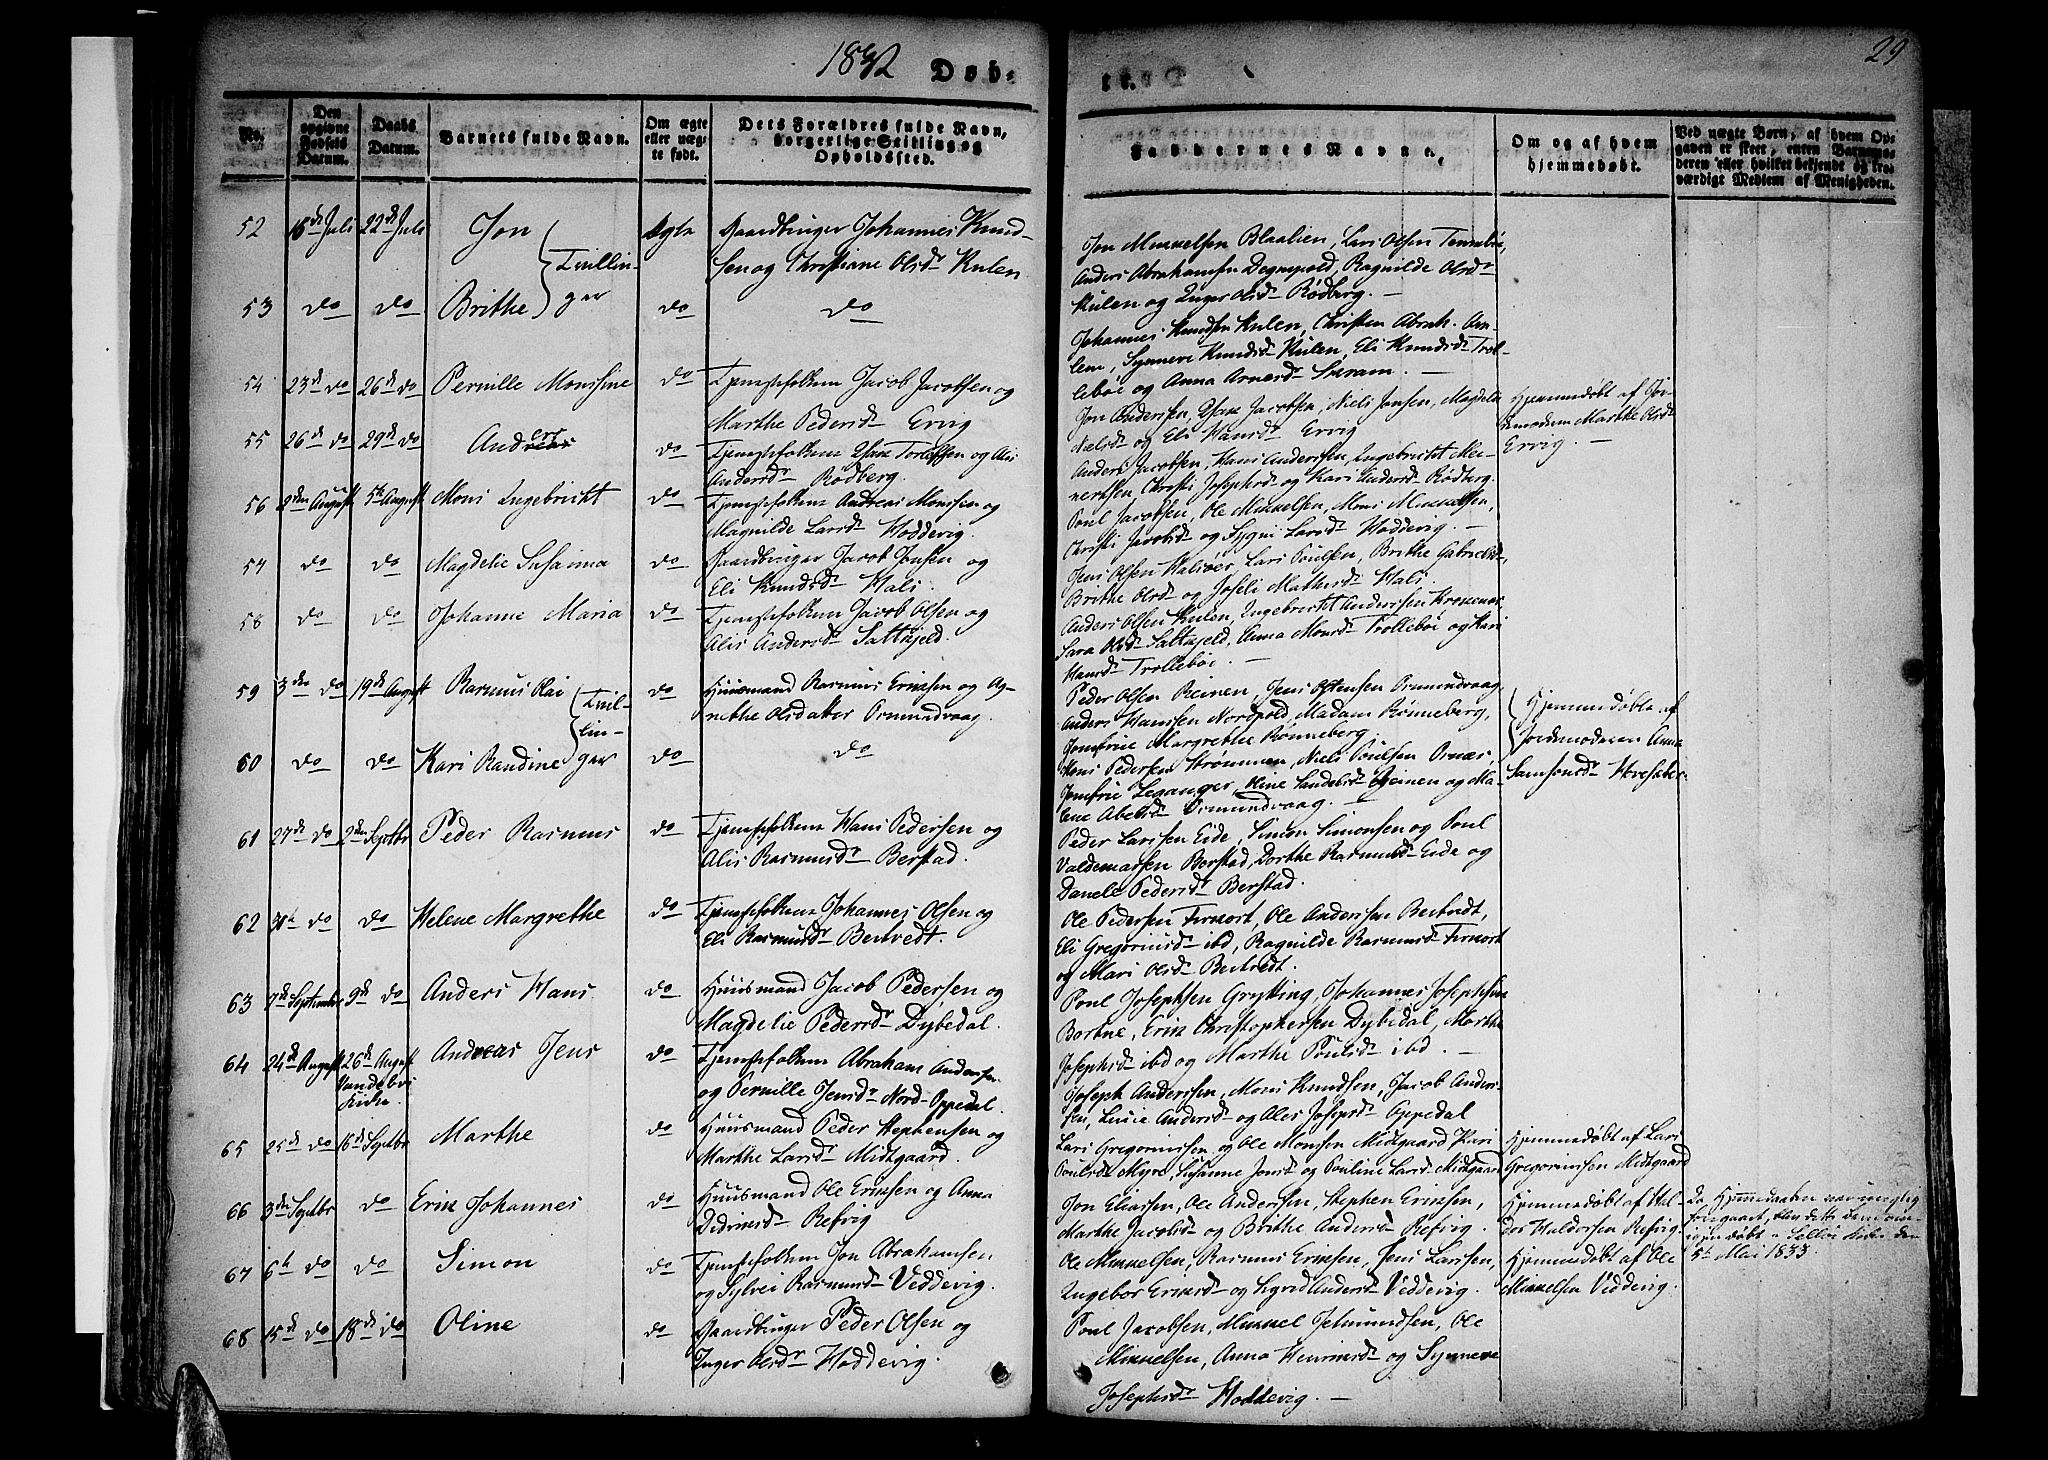 1832 Døb-
te.
29
No.
Den opgivne Fødsels Datum.
Daabs Datum.
Barnets fulde Navn.
Om ægte eller uægte født.
Dets Forældres fulde Navn, borgerlige Stilling og Opholdssted.
Faddernes Navne,
Om og af hvem hjemmedøbt.
Ved uægte Børn, af hvem Opgaven er skeet, enten Barnemoderen eller hvilket bekjendt og troværdigt Medlem af Menigheden.
52 18de Juli 22de Juli Jon Ægte Gaardbruger Johannes Knud-
sen og Christiane Olsdr Kulen
Tvillin-
ger
53 do do Brithe do do
Jon Mikkelsen Blaalien, Lars Olsen Tennebøe,
Anders Abrahamsen Dognepold, Ragnilde Olsdr
Kulen og Inger Olsdr Rødberg. —
Johannes Knudsen Kulen, Christen Abrah.
Synneve Knudsdr Kulen, Eli Knudsdr Trol-
lebøe og Anna Arnesdr —
54 23de do 26de do Pernille Monsine do Tjenestefolkene Jacob Jacobsen og
Marthe Pedersdr Ervig
Jon Andersen, Jacobsen, Niels Jensen, Magdela
Nielsdr og Eli Hansdr Ervig
Hjemmedøbt af Jor-
demodern Marthe Olsdr
Ervig. —
55 26de do 29de do Anders do Tjenestefolkene Torelfsen og Alis
Andersdr Rødberg.
Anders Jacobsen, Hans Andersen, Ingebricht
Christi Josephsdr og Kari Andersdr Rødberg.
56 2den August 5te August Mons Ingebricht do Tjenestefolkene Andreas Monsen og
Magnilde Larsdr Hoddevig.
Poul Jacobsen, Ole Mikkelsen, Mons Mikkelsen,
Christi Jacobsdr og Larsdr Hoddevig. —
57 do do Magdelie Susanna do Gaardbruger Jacob Jensen og
Eli Knudsdr Hals.
Jens Olsen Halsøer, Lars Poulsen, Brithe Gabrielsdr,
Brithe Olsdr og Joseli Mathisdr Hals.
58 do do Johanne Maria do Tjenestefolkene Jacob Olsen og
Alis Andersdr Sattkjeld.
Anders Olsen Kulen, Ingebricht Andersen
Sara Olsdr Sattkjeld, Anna Monsdr Trollebøe og Kari
Hansdr Trollebøe. —
59 3die do 19de August Rasmus Olai do Huusmand Rasmus Ericksen og Ag-
nethe Olsdatter Ormundvaag.
Tvil-
lin-
60 do do Kari Randine ger do do
Peder Olsen Reinen, Jens Ormundvaag,
Anders Hansen Nordpold, Madam Rønneberg,
Jomfrue Margrethe Rønneberg.
Mons Pedersen Strømmen, Niels Poulsen Ornæs,
Jomfrue Leganger, Oline Sandelsdr Reinen og Ma-
lene Abelsdr Ormundvaag. —
Hjemmedøbte af
Jordemoderen Anna
Samsonsdr Hovsæter.
61 27de do 2den Septbr Peder Rasmus do Tjenestefolkene Hans Pedersen og
Alis Rasmusdr Berstad.
Peder Larsen Eide, Simon Simonsen og Poul
Valdemarsen Berstad, Dorthe Rasmusdr Eide og
Danele Pedersdr Berstad.
62 do do Helene Margrethe do Tjenestefolkene Johannes Olsen og
Eli Rasmusdr Bertvedt.
Ole Pedersen, Ole Andersen Bertvedt,
Eli Gregoriusdr ibd, Ragnilde Rasmusdr
og Mari Olsdr Bertvedt.
63 7de September 9de do Anders Hans do Huusmand Jacob Pedersen og
Magdelie Pedersdr Dybedal.
Poul Josephsen Grytting, Johannes Josephsen
Bortne, Erik Christophersen Dybedal, Marthe
Josephsdr ibd og Marthe Poulsdr ibd. —
64 24de August 26de August Andreas Jens do Tjenestefolkene Abraham Andersen
Vandelvs
Kirke.
og Pernille Jensdr Nord-Oppedal.
Joseph Andersen, Mons Knudsen, Jacob Ander-
sen, Lucie Andersdr og Ales Josepsdr Oppedal
65 25de do 16de Septbr Marthe do Huusmand Peder Stephensen og
Marthe Larsdr Midtgaard.
Lars Gregoriussen og Ole Monsen Midtgaard, Kari
Poulsdr Myre, Susanne Jonsdr og Pouline Larsdr Midtgaard
Hjemmedøbt af Lars
Gregoriussen Midtgaard
66 3die Septbr do Erik Johannes do Huusmand Ole Ericksen og Anna
Didriksdr Refvig
Jon Eliassen, Ole Andersen, Stephen Ericksen,
Marthe Jacobsdr og Brithe Andersdr Refvig.
Hjemmedøbt af Hal-
dor Haldorsen Refvig.
Da Hjemmedaaben var urigtig
foregaaet, blev dette Barn om-
igjen døbt i Selløe Kirke den
5te Mai 1833
67 6te do do Simon do Tjenestefolkene Jon Abrahamsen
og Sylvei Rasmusdr Veddevig.
Ole Mikkelsen, Rasmus Ericksen, Jens Larsen,
Ingebor Ericksdr og Sigrid Andersdr Veddevig.
Hjemmedøbt af Ole
Mikkelsen Veddevig.
68 15de do 18de do Oline do Gaardbruger Peder Olsen og
Inger Olsdr Hoddevig.
Poul Jacobsen, Mikkel, Ole
Mikkelsen, Anna Henriksdr og Synneve
Josephsdr Hoddevig. —